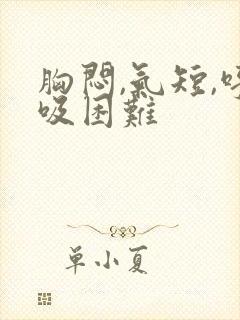 胸悶,氣短,呼
吸困難
单小夏